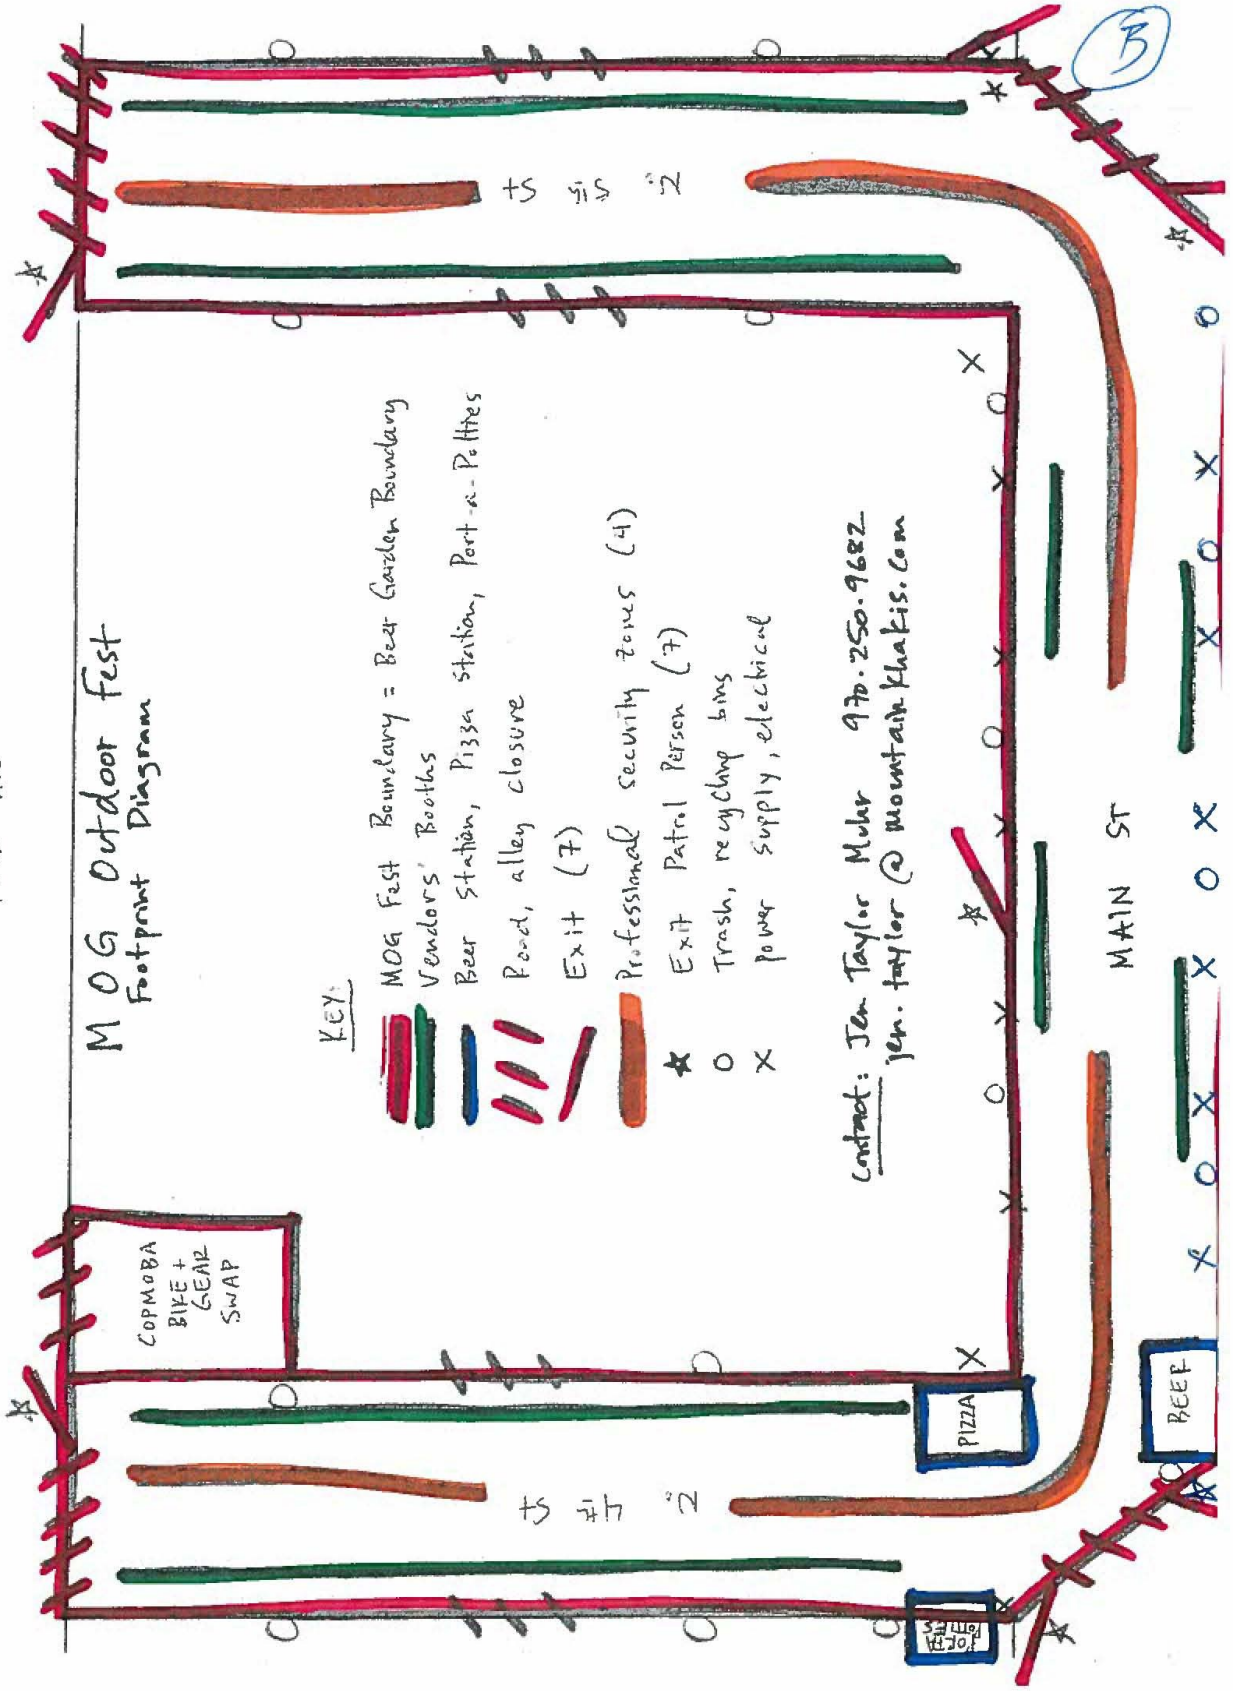 MOG Outdoor Fest
Footprint Diagram
KEY:
MOG Fest Boundary = Beer Garden Boundary
Vendors' Booths
Beer Station, Pizza Station, Port-a-Potties
Road, alley closure
Exit (7)
Professional security zones (4)
★ Exit Patrol Person (7)
O Trash, recycling bins
X Power supply, electrical
Contact: Jen Taylor Muhr 970.250.9682
jen.taylor@mountainkhakis.com
COPMOBA
BIKE +
GEAR
SWAP
N. 4th St
N. 5th St
MAIN ST
PIZZA
BEER
PORTA
POTTIES
B